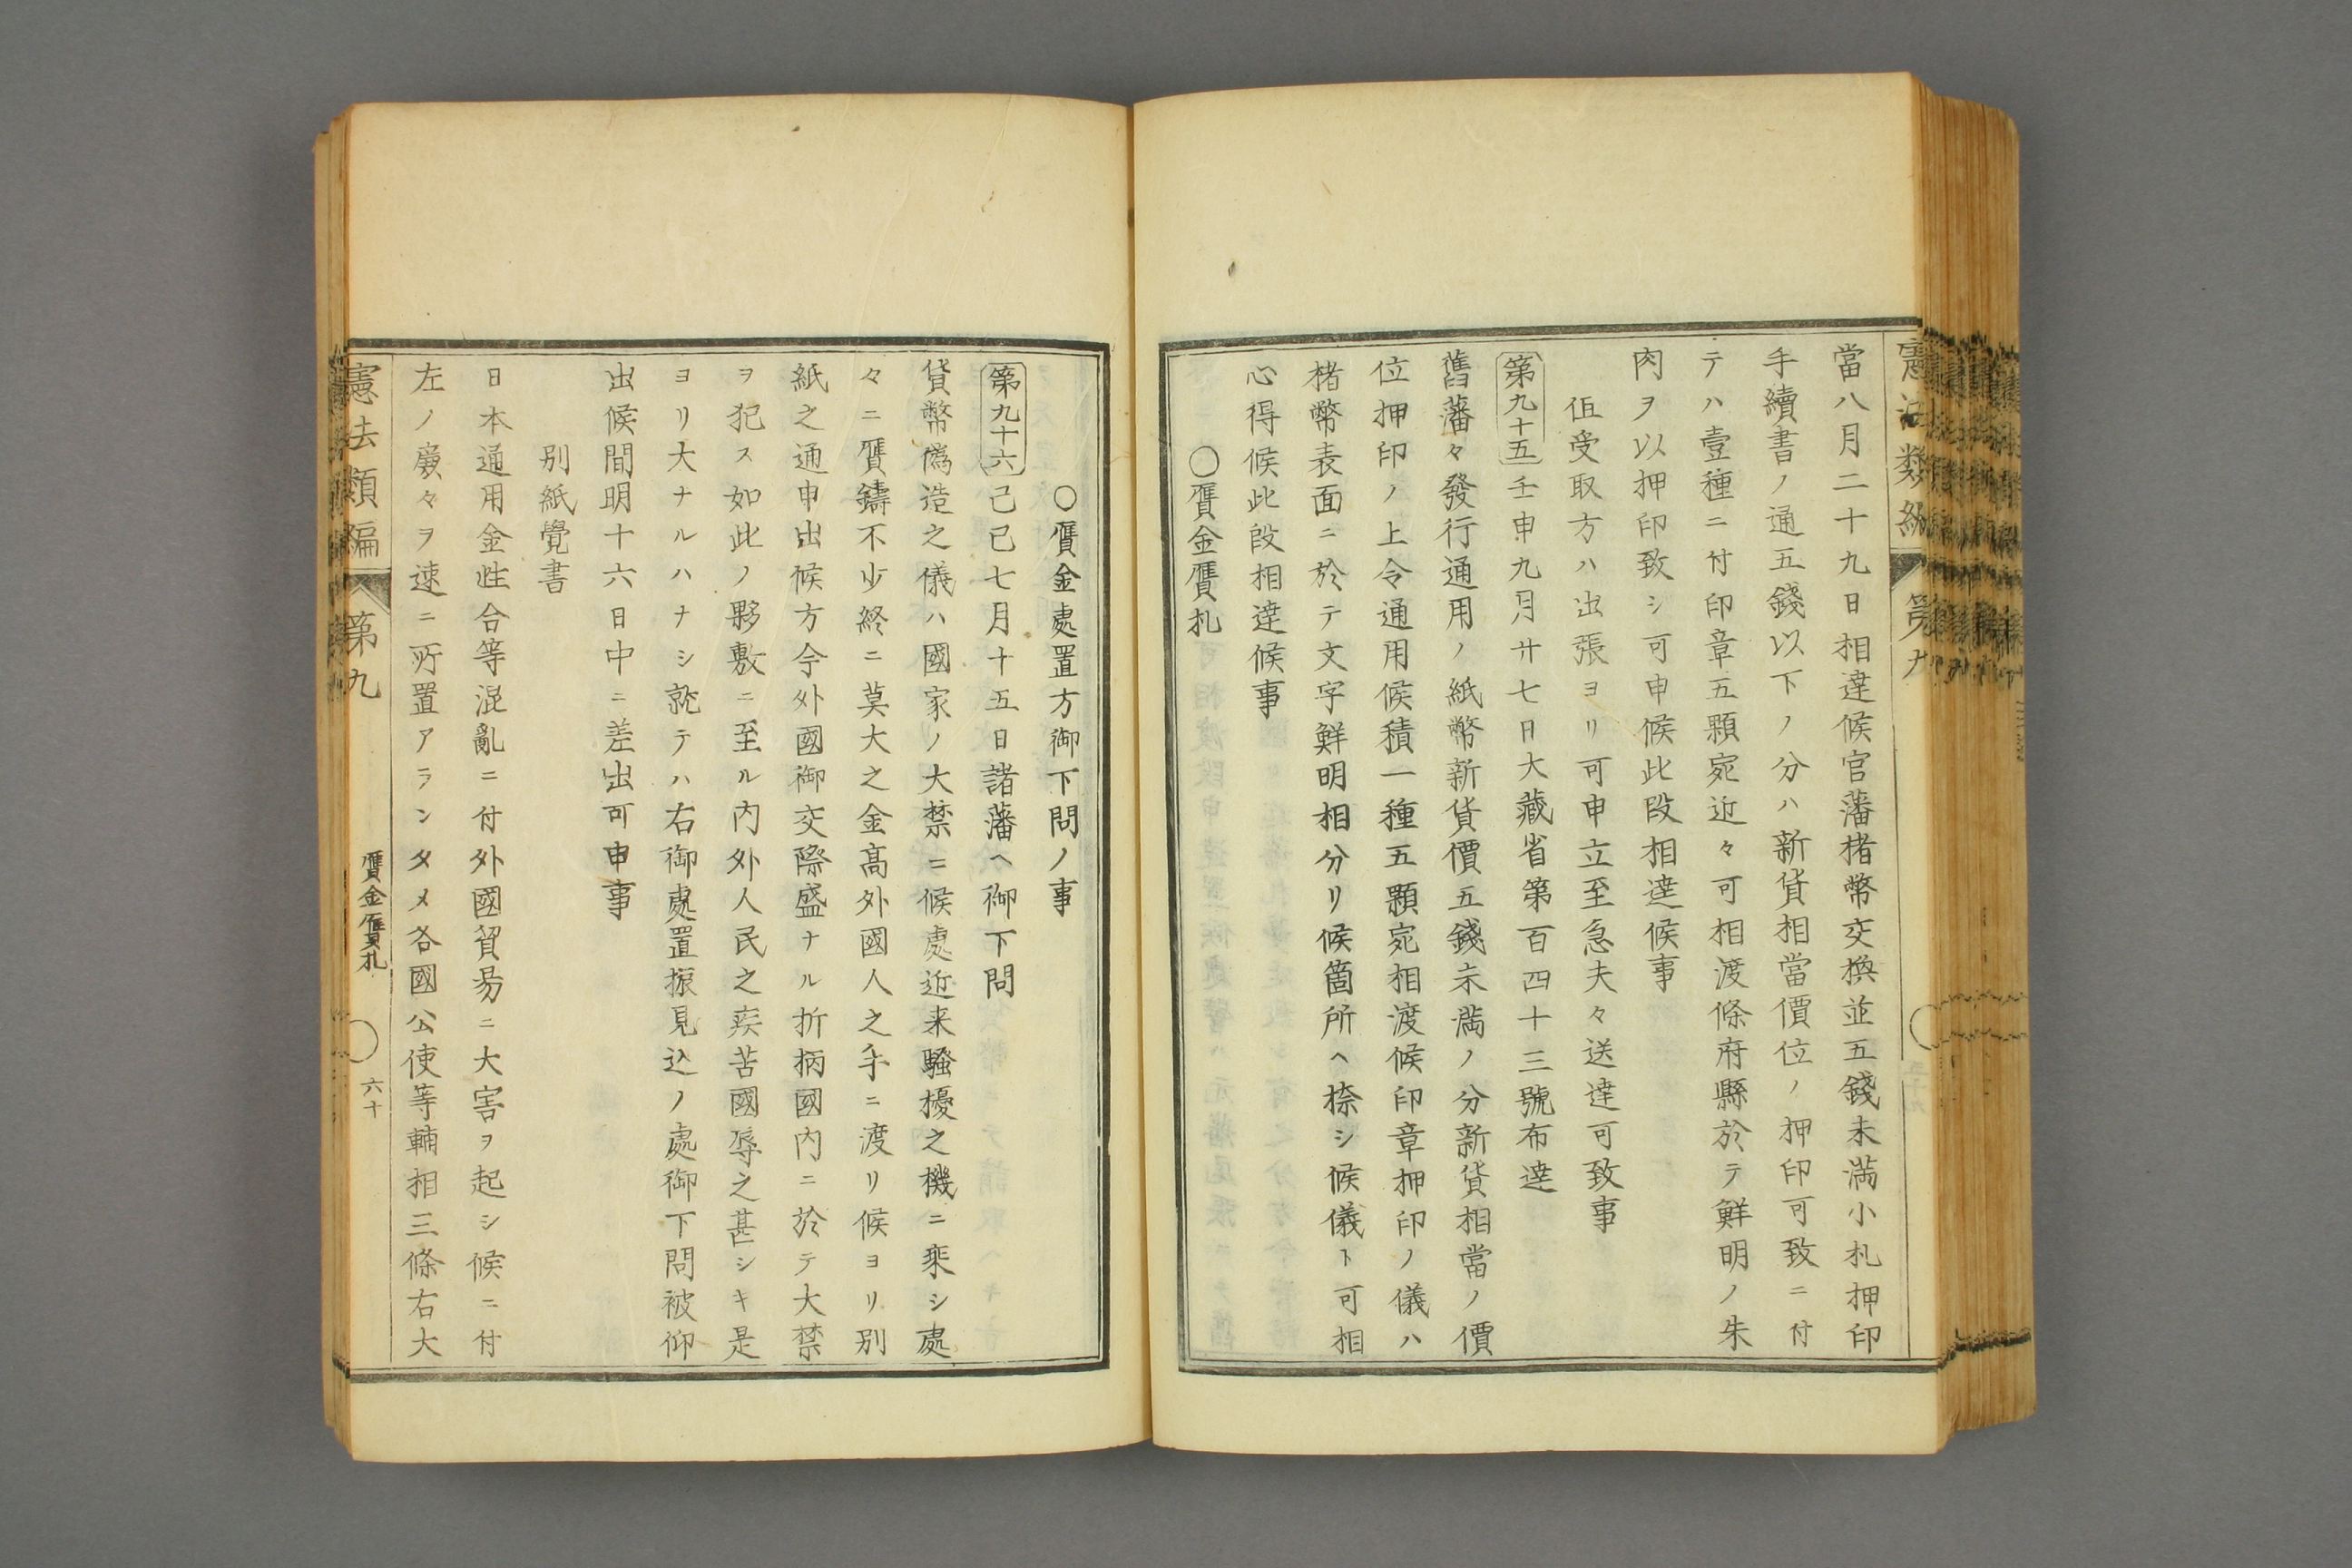 當八月二十九日相達候官藩楮幣交換並五錢未滿小札押印
手續書ノ通五錢以下ノ分ハ新貨相當價位ノ押印可致ニ付
テハ壹種ニ付印章五顆宛近々可相渡條府縣於テ鮮明ノ朱
肉ヲ以押印致シ可申候此段相達候事
但受取方ハ出張ヨリ可申立至急夫々送達可致事
第九十五 壬申九月廿七日大藏省第百四十三號布達
舊藩々發行通用ノ紙幣新貨價五錢未滿ノ分新貨相當ノ價
位押印ノ上令通用候積一種五顆宛相渡候印章押印ノ儀ハ
楮幣表面ニ於テ文字鮮明相分リ候箇所ヘ捺シ候儀ト可相
心得候此段相達候事
○贋金贋札
○贋金處置方御下問ノ事
第九十六 己巳七月十五日諸藩ヘ御下問
貨幣僞造之儀ハ國家ノ大禁ニ候處近来騷擾之機ニ乘シ處
々ニ贋鑄不少終ニ莫大之金高外國人之手ニ渡リ候ヨリ別
紙之通申出候方今外國御交際盛ナル折柄國内ニ於テ大禁
ヲ犯ス如此ノ夥敷ニ至ル内外人民之疾苦國辱之甚シキ是
ヨリ大ナルハナシ就テハ右御處置振見込ノ處御下問被仰
出候間明十六日中ニ差出可申事
別紙覺書
日本通用金性合等混亂ニ付外國貿易ニ大害ヲ起シ候ニ付
左ノ廉々ヲ速ニ所置アランタメ各國公使等輔相三條右大
憲法類編 第九 贋金贋札 六十